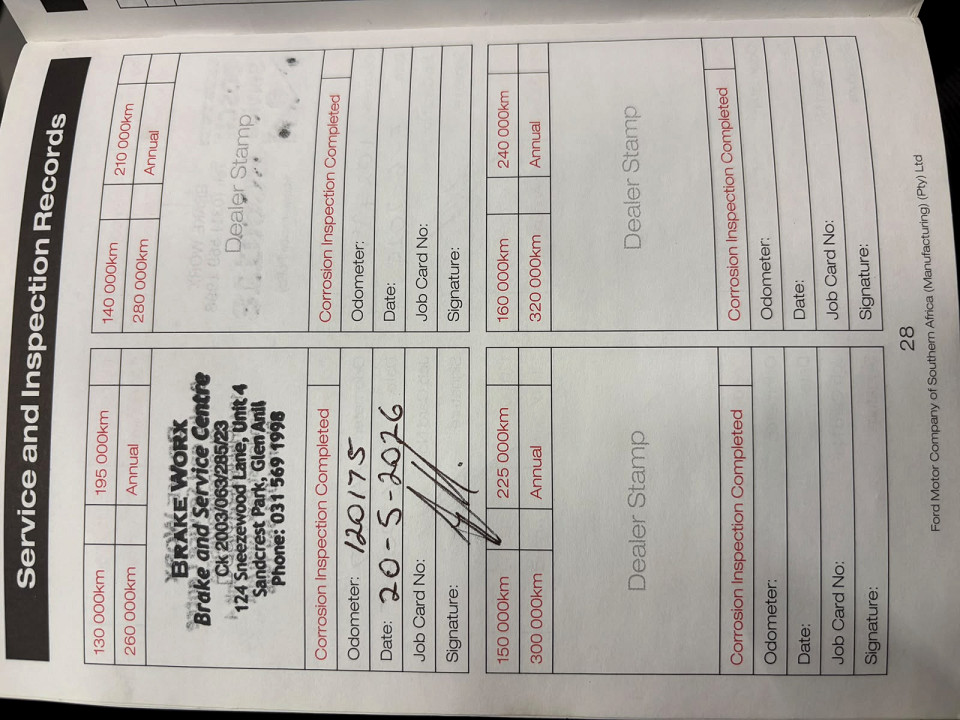 Service and Inspection Records
130 000km 195 000km
260 000km Annual
BRAKE WORX
Brake and Service Centre
CK 2003/063/285/23
124 Sneezewood Lane, Unit 4
Sandcrest Park, Glen Anil
Phone: 031 569 1998
Corrosion Inspection Completed
Odometer: 120175
Date: 20-5-2026
Job Card No:
Signature:
140 000km 210 000km
280 000km Annual
Dealer Stamp
Corrosion Inspection Completed
Odometer:
Date:
Job Card No:
Signature:
150 000km 225 000km
300 000km Annual
Dealer Stamp
Corrosion Inspection Completed
Odometer:
Date:
Job Card No:
Signature:
160 000km 240 000km
320 000km Annual
Dealer Stamp
Corrosion Inspection Completed
Odometer:
Date:
Job Card No:
Signature:
28
Ford Motor Company of Southern Africa (Manufacturing) (Pty) Ltd